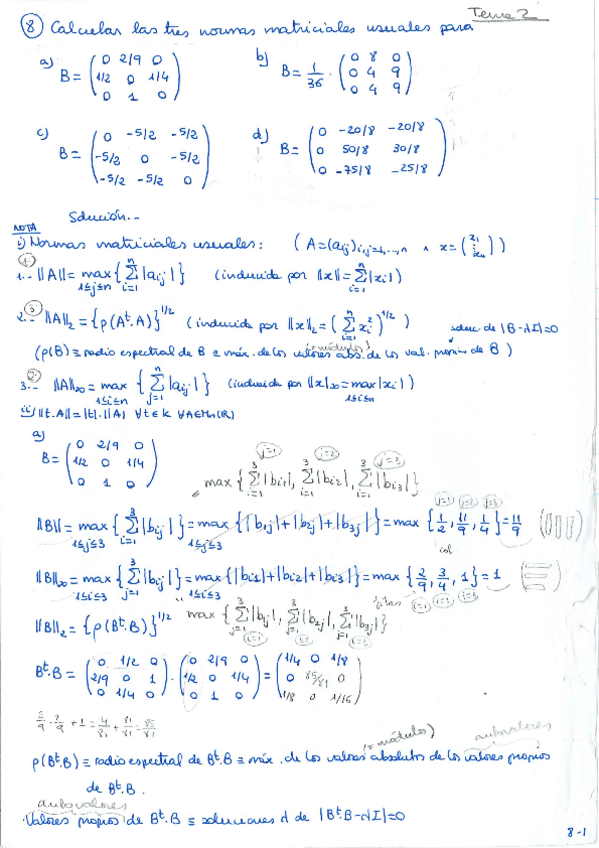 Tema 2
⑧ Calcular las tres normas matriciales usuales para
a) B = ( 0 2/9 0 ; 1/2 0 1/4 ; 0 1 0 )
b) B = 1/36 · ( 0 8 0 ; 0 4 9 ; 0 4 9 )
c) B = ( 0 -5/2 -5/2 ; -5/2 0 -5/2 ; -5/2 -5/2 0 )
d) B = ( 0 -20/8 -20/8 ; 0 50/8 30/8 ; 0 -75/8 -25/8 )
Solución.-
NOTA
i) Normas matriciales usuales: ( A=(aij)i,j=1,...,n ∧ x=( x1 ⋮ xn ) )
1.- ||A|| = max 1≤j≤n { Σ i=1 n |aij| } (inducida por ||x|| = Σ i=1 n |xi| )
2.- ③ ||A||₂ = {ρ(Aᵗ·A)}^1/2 (inducida por ||x||₂ = ( Σ i=1 n xi² )^1/2 ) soluc. de |B-λI|=0
(ρ(B) ≡ radio espectral de B ≡ máx. de los valores abs. (≡ módulos) de los val. propios de B )
3.- ② ||A||∞ = max 1≤i≤n { Σ j=1 n |aij| } (inducida por ||x||∞ = max 1≤i≤n |xi| )
ii) ||t.A|| = |t|.||A|| ∀t∈K ∀A∈Mn(R)
a)
B = ( 0 2/9 0 ; 1/2 0 1/4 ; 0 1 0 )
j=1 j=2 j=3
= max { Σ i=1 3 |bi1|, Σ i=1 3 |bi2|, Σ i=1 3 |bi3| }
j=1 j=2 j=3
||B|| = max 1≤j≤3 { Σ i=1 3 |bij| } = max 1≤j≤3 { |b1j|+|b2j|+|b3j| } = max { 1/2, 11/9, 1/4 } = 11/9
col.
||B||∞ = max 1≤i≤3 { Σ j=1 3 |bij| } = max 1≤i≤3 { |bi1|+|bi2|+|bi3| } = max { 2/9, 3/4, 1 } = 1
filas i=1 i=2 i=3
||B||₂ = {ρ(Bᵗ.B)}^1/2
= max { Σ j=1 3 |b1j|, Σ j=1 3 |b2j|, Σ j=1 3 |b3j| }
i=1 i=2 i=3
Bᵗ.B = ( 0 1/2 0 ; 2/9 0 1 ; 0 1/4 0 ) · ( 0 2/9 0 ; 1/2 0 1/4 ; 0 1 0 ) = ( 1/4 0 1/8 ; 0 85/81 0 ; 1/8 0 1/16 )
2/9 · 2/9 + 1 = 4/81 + 81/81 = 85/81
(≡ módulos) autovalores
ρ(Bᵗ.B) ≡ radio espectral de Bᵗ.B ≡ máx. de los valores absolutos de los valores propios
de Bᵗ.B.
autovalores
Valores propios de Bᵗ.B ≡ soluciones λ de |Bᵗ.B-λI|=0
8-1